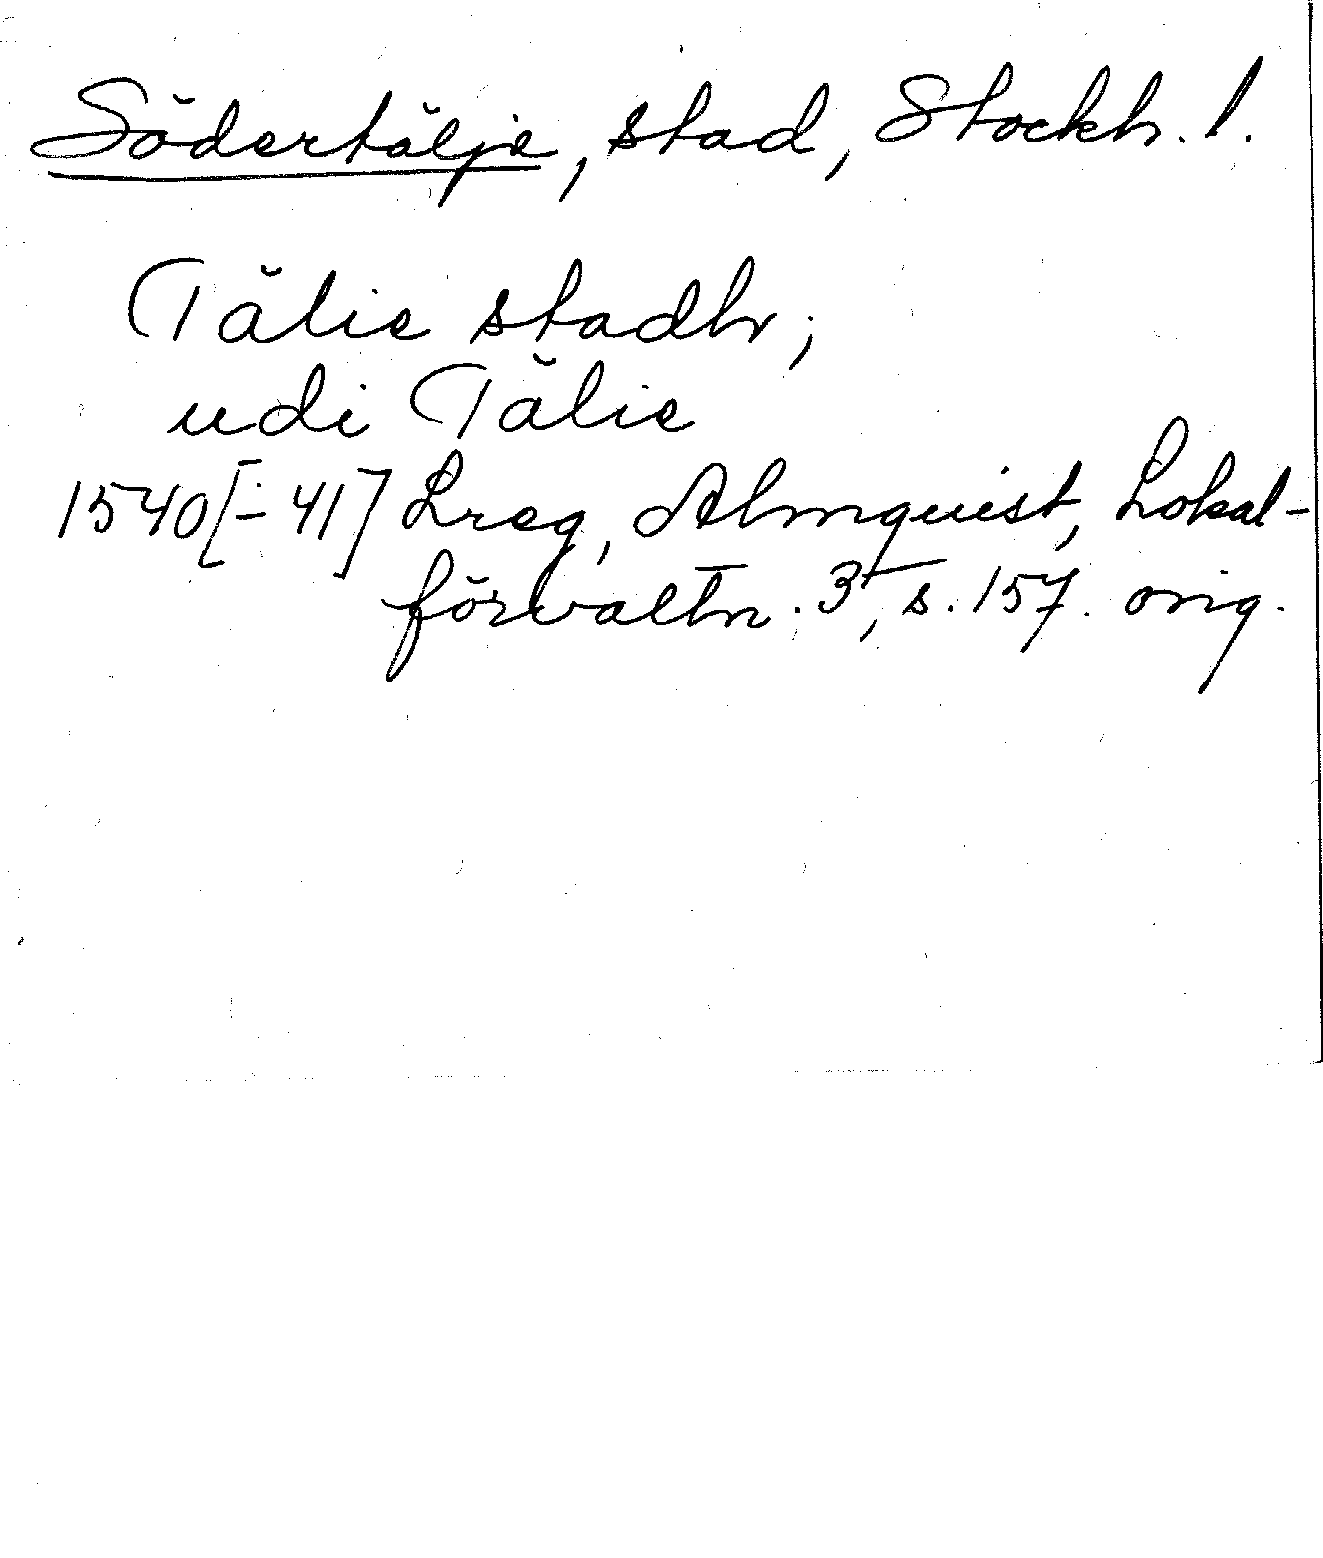 Södertälje, stad, Stockh. l.
Tälie stadh;
udi Tälie
1540[-41] Lreg, Almquist, Lokal-
förvaltn. 3, s. 157. orig.